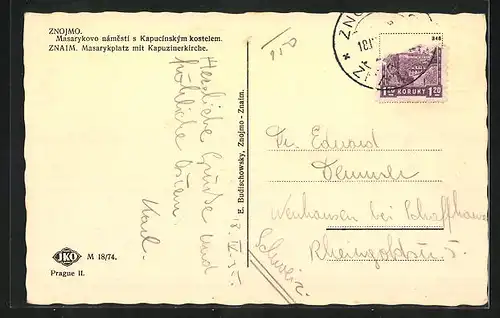 ZNOJMO.
Masarykovo náměstí s Kapucínským kostelem.
ZNAIM. Masarykplatz mit Kapuzinerkirche.
Herzliche Grüsse und
fröhliche Ostern.
Karl.
18. IV. 35.
E. Budischowsky, Znojmo - Znaim.
JKO
M 18/74.
Prague II.
1.50
ZNO
246
1.20 KORUNY 1.20
Eduard
Neuhausen bei Schaffhausen
Rheingoldstr. 5.
Schweiz.